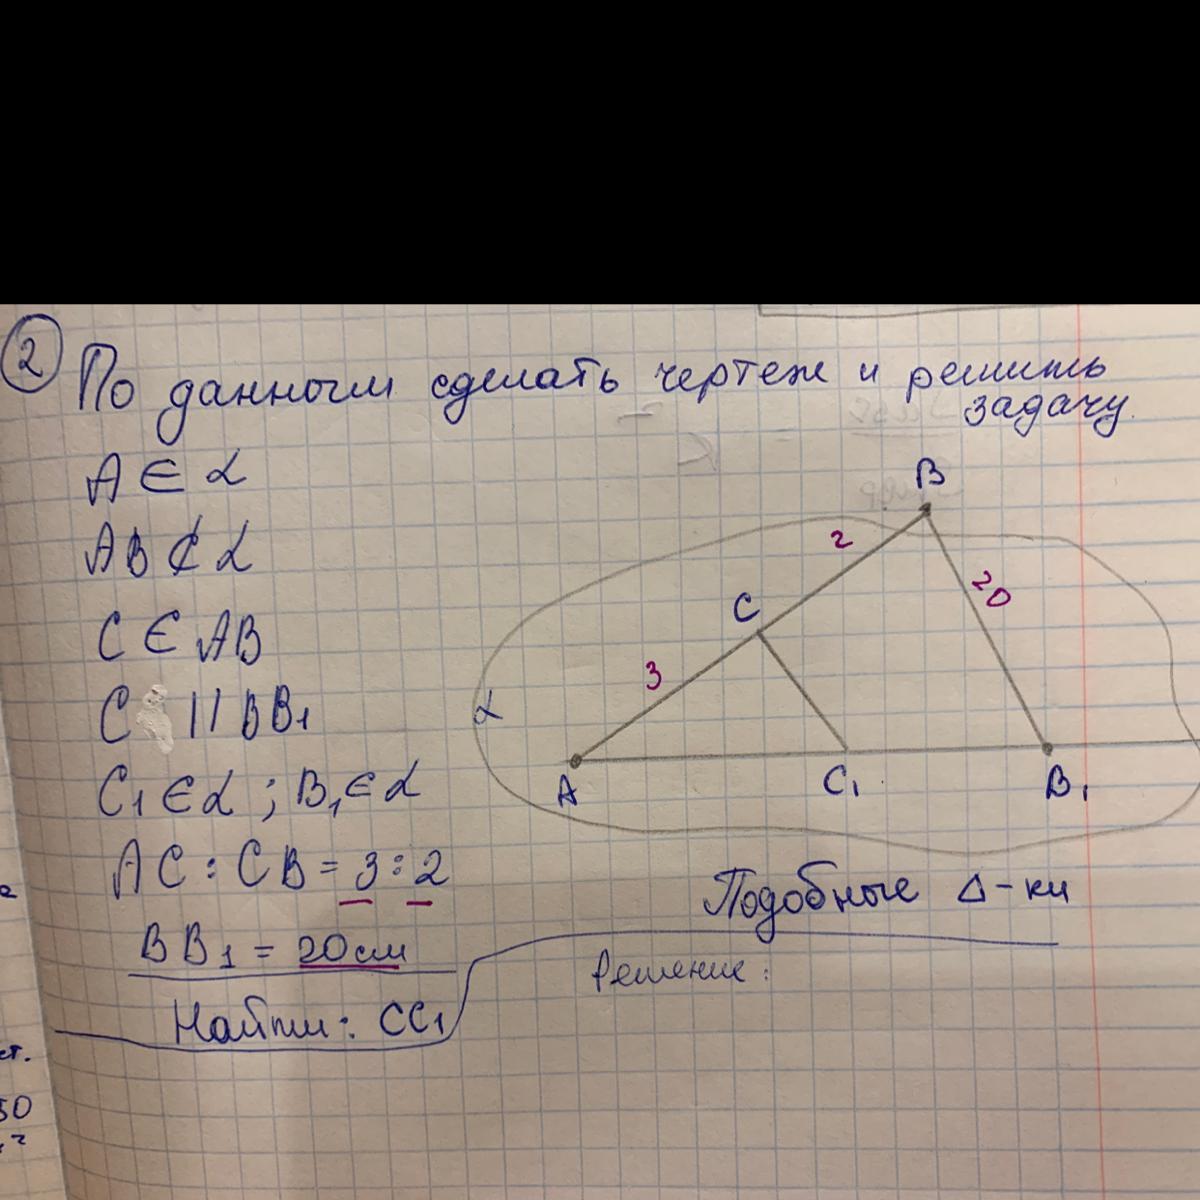 2
По данным сделать чертеж и решить
задачу.
A ∈ α
AB ⊄ α
C ∈ AB
C || BB₁
C₁ ∈ α ; B₁ ∈ α
AC : CB = 3 : 2
BB₁ = 20 см
Найти: CC₁
B
2
20
C
3
α
A
C₁
B₁
Подобные Δ-ки
Решение:
ст.
50